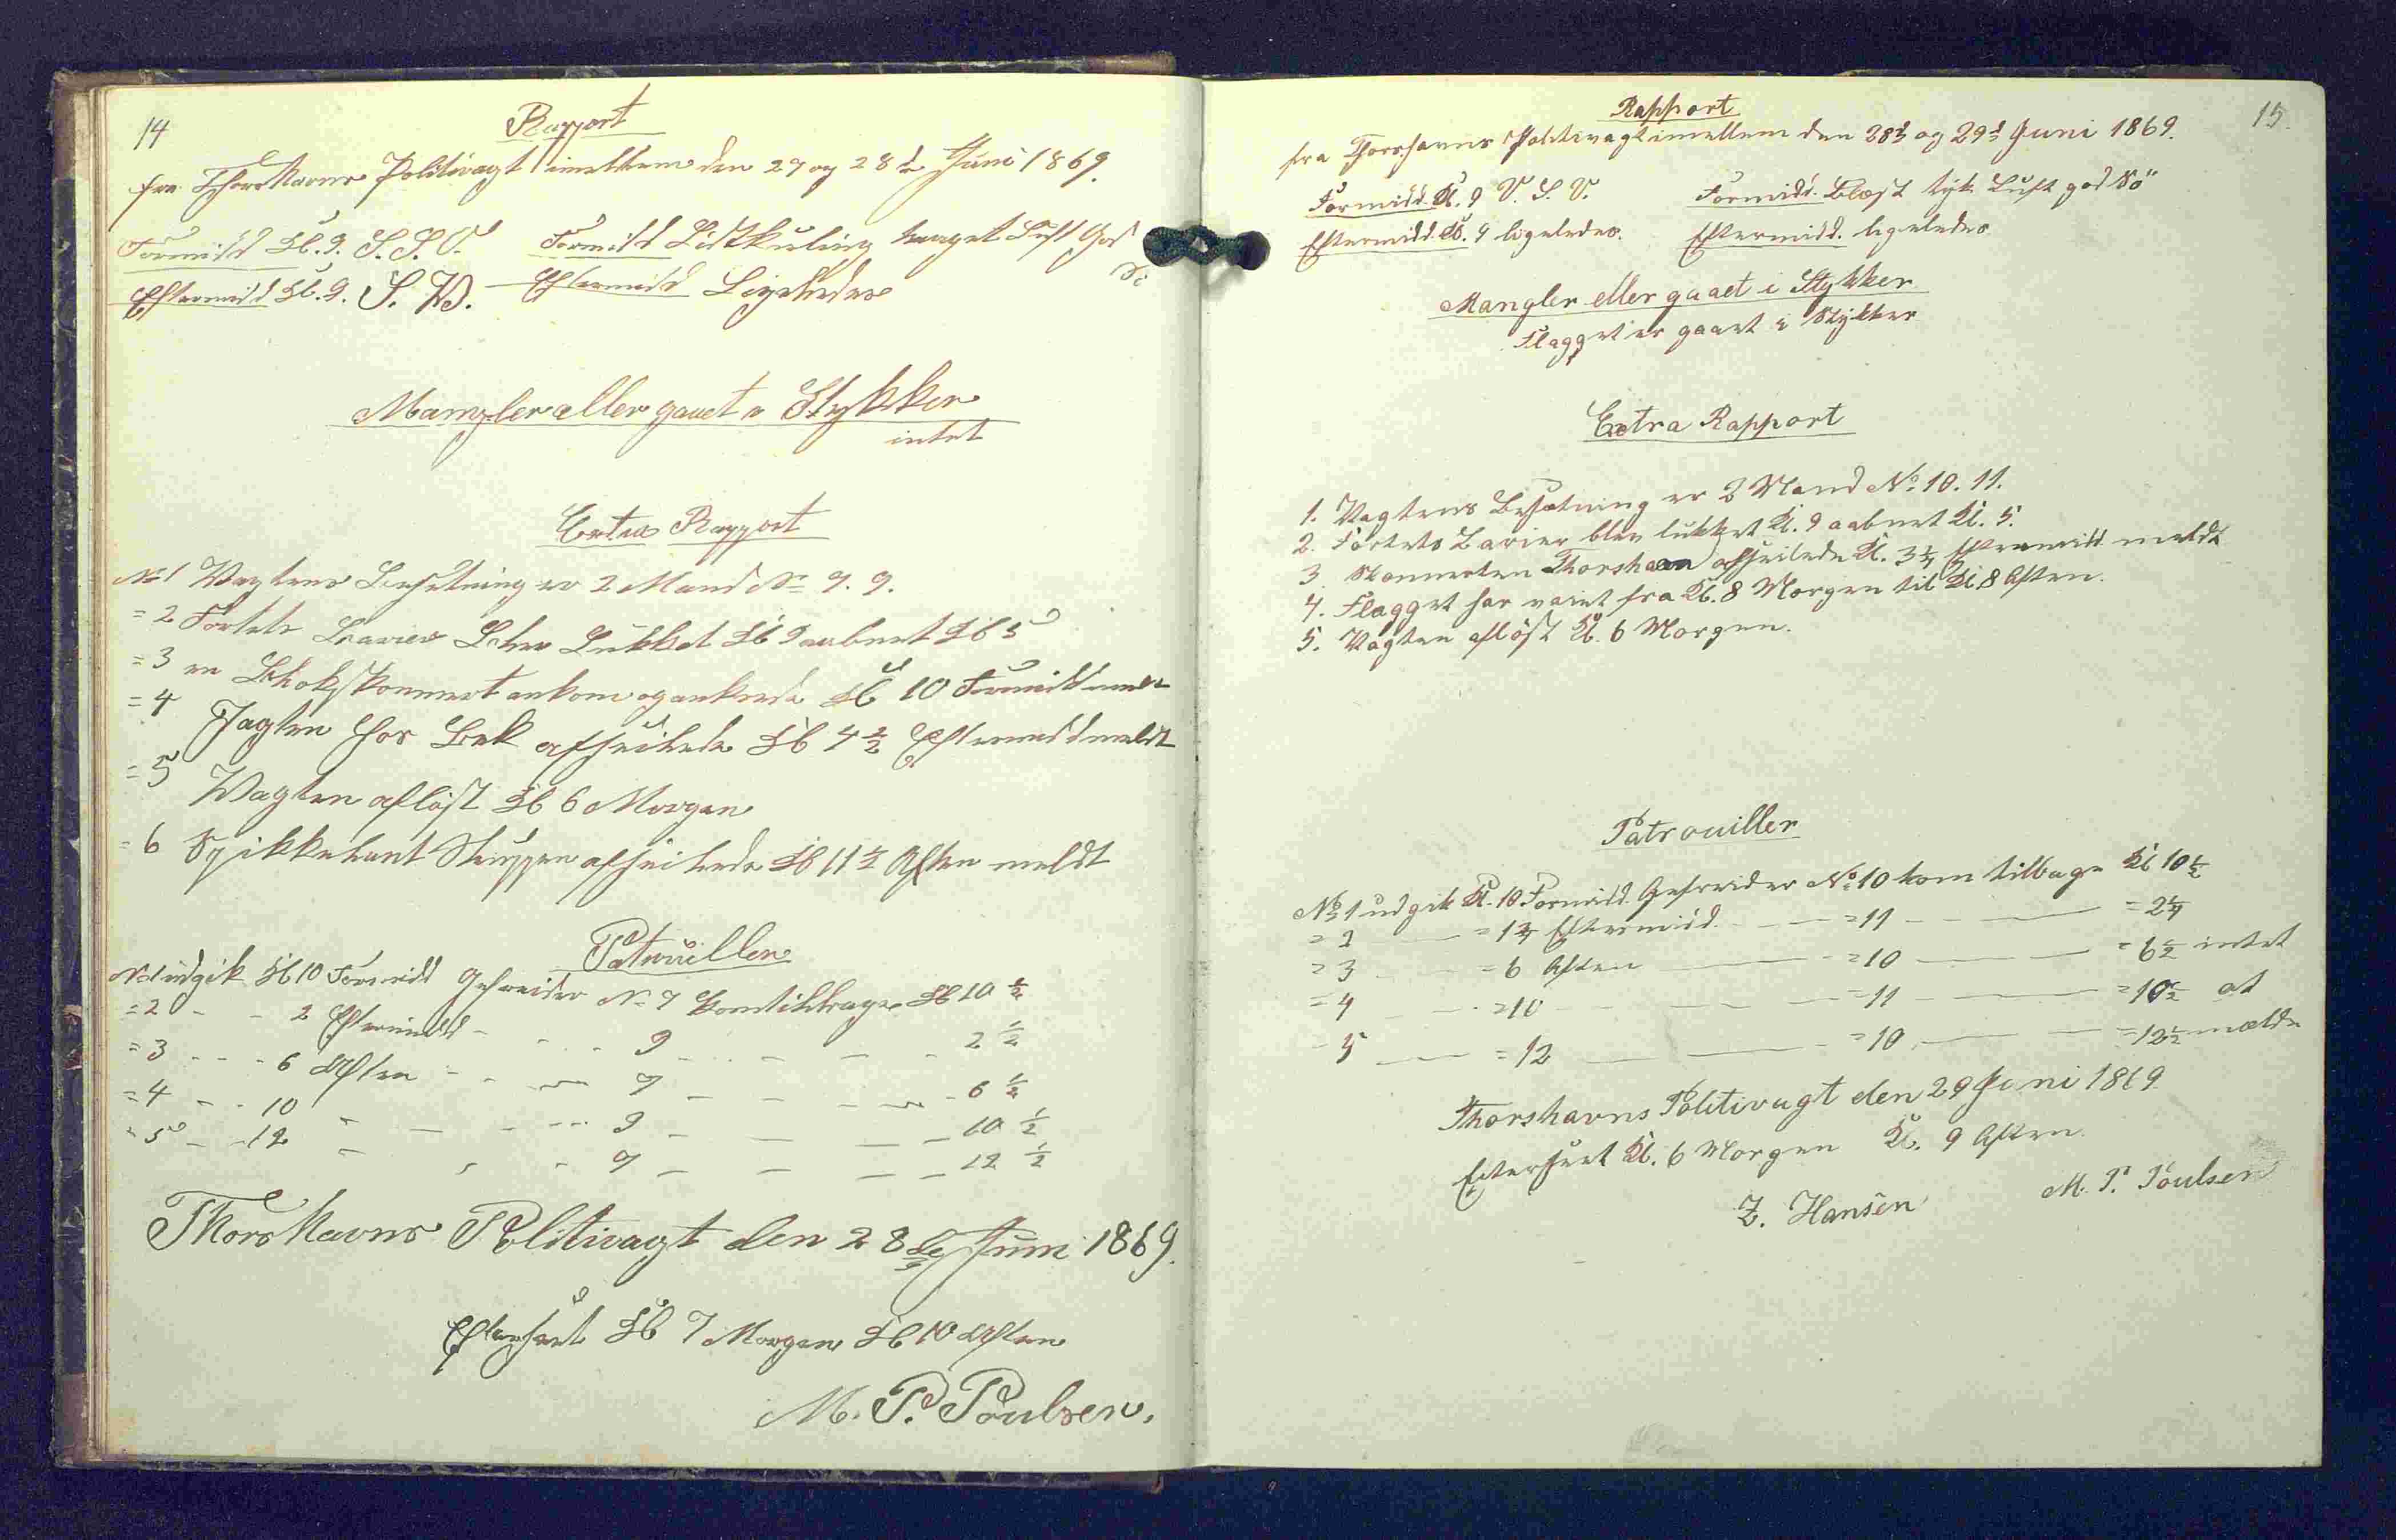 14
Rapport
fra Thorshavns Politivagt imellem den 27 og 28 de Juni 1869.
Formidd Kl. 9. S.S.V. Formidd Lidtkuling taaget Luft God
Sö
Eftermidd Kl. 9. S. W. Eftermidd Ligeledes
Mangler eller gaaet i Stykker
intet
Extra Rapport
No 1 Vagtens Besetning er 2 Mand No 7. 9.
= 2 Fortets Barier Blev Lukket Kl 9 aabnet Kl 5
= 3 en Skonnert ankom og ankrede Kl 10 Formidd meldt
= 4 Jagten hos Bek afseilede Kl 4 1/2 Eftermidd meldt
= 5 Vagten aflöst Kl 6 Morgen
= 6 afseilede Kl 11 1/2 Aften meldt
Patrouiller
No 1 udgik Kl 10 Formidd Gefreider No 7 kom tilbage Kl 10 1/2
= 2 - - 2 Eftermidd - - - 9 - - - - 2 1/2
= 3 - - - 6 Aften - - - 7 - - - - 6 1/2
= 4 - - 10 - - - - 9 - - - - 10 1/2
= 5 - - 12 - - - 7 - - - - 12 1/2
Thorshavns Politivagt den 28 de Juni 1869.
Efterseet Kl 7 Morgen Kl 10 Aften
M. P. Poulsen.
15.
Rapport
fra Thorshavns Politivagt imellem den 28d og 29d Juni 1869.
Formidd. Kl. 9 V. S. V. Formidd. Blæst tÿk Luft god Sö
Eftermidd. Kl. 9 ligeledes. Eftermidd. ligeledes
Mangler eller gaaet i Stykker
Flagget er gaaet i Stÿkker
Extra Rapport
1. Vagtens Besætning er 2 Mand No. 10. 11.
2. Fortets Barier blev lukket Kl. 9 aabnet Kl. 5.
3. Skonnerten Thorshavn afseilede Kl. 3 1/4 Eftermidd meldt
4. Flagget har vaiet fra Kl. 8 Morgen til Kl 8 Aften.
5. Vagten aflöst Kl. 6 Morgen.
Patrouiller
No 1 udgik Kl. 10 Formidd. Gefreider No. 10 kom tilbage Kl 10 1/2
= 2 — = 1 3/4 Eftermidd. — = 11 — = 2 1/4
= 3 — = 6 Aften — = 10 — = 6 1/2 intet
= 4 — = 10 — = 11 — = 10 1/2 at
= 5 — = 12 — = 10 — = 12 1/2 melde
Thorshavns Politivagt den 29 Juni 1869.
Efterseet Kl. 6 Morgen Kl. 9 Aften.
Z. Hansen M. P. Poulsen